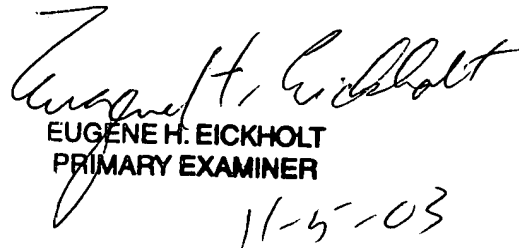 Eugene H. Eickholt
EUGENE H. EICKHOLT
PRIMARY EXAMINER
11-5-03